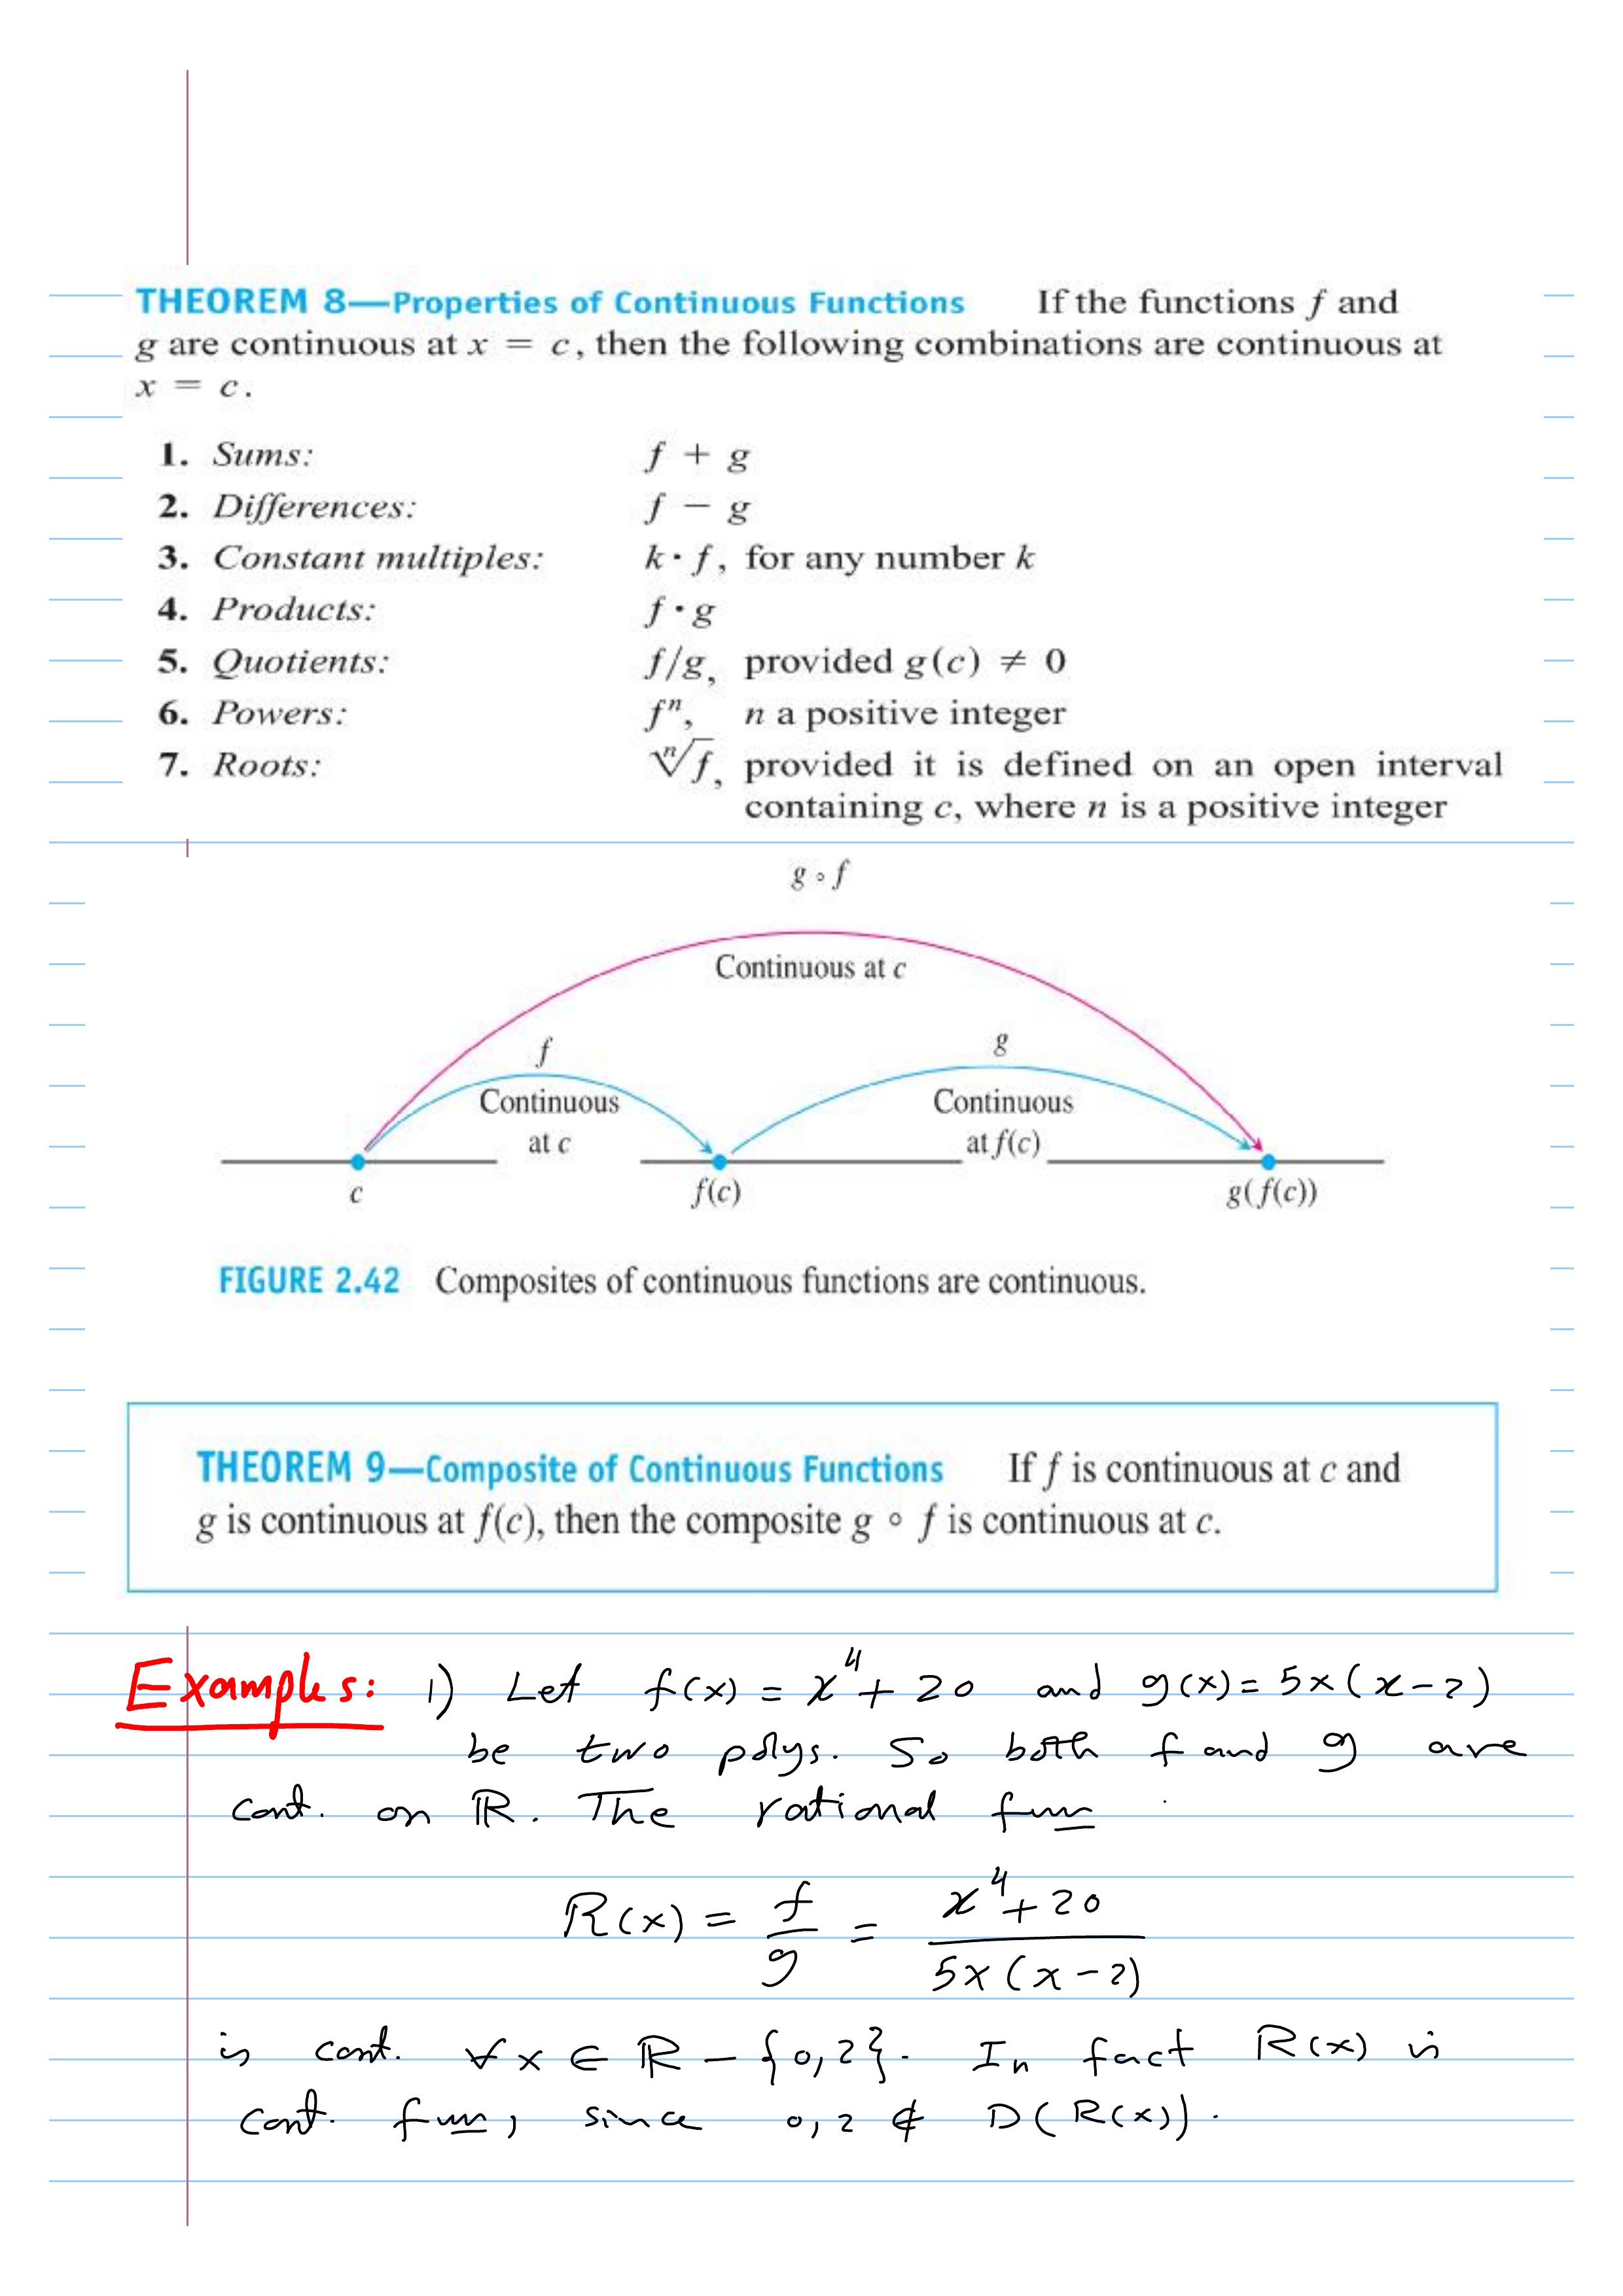 THEOREM 8—Properties of Continuous Functions If the functions f and
g are continuous at x = c, then the following combinations are continuous at
x = c.
1. Sums: f + g
2. Differences: f − g
3. Constant multiples: k · f, for any number k
4. Products: f · g
5. Quotients: f/g, provided g(c) ≠ 0
6. Powers: fⁿ, n a positive integer
7. Roots: ⁿ√f, provided it is defined on an open interval
containing c, where n is a positive integer
g ∘ f
Continuous at c
f
g
Continuous
at c
Continuous
at f(c)
c
f(c)
g(f(c))
FIGURE 2.42 Composites of continuous functions are continuous.
THEOREM 9—Composite of Continuous Functions If f is continuous at c and
g is continuous at f(c), then the composite g ∘ f is continuous at c.
Examples: 1) Let f(x) = x⁴ + 20 and g(x) = 5x(x-2)
be two polys. So both f and g are
cont. on ℝ. The rational fun
R(x) = f/g = x⁴+20 / 5x(x-2)
is cont. ∀x ∈ ℝ - {0,2}. In fact R(x) is
cont. fun, since 0,2 ∉ D(R(x)).